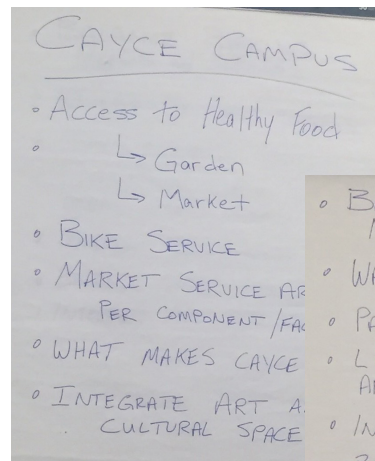 CAYCE CAMPUS
• Access to Healthy Food
•
↳ Garden
↳ Market
• BIKE SERVICE
• MARKET SERVICE AR
PER COMPONENT/FAC
• WHAT MAKES CAYCE
• INTEGRATE ART A
CULTURAL SPACE
• B
• WA
• PA
• L
• IN